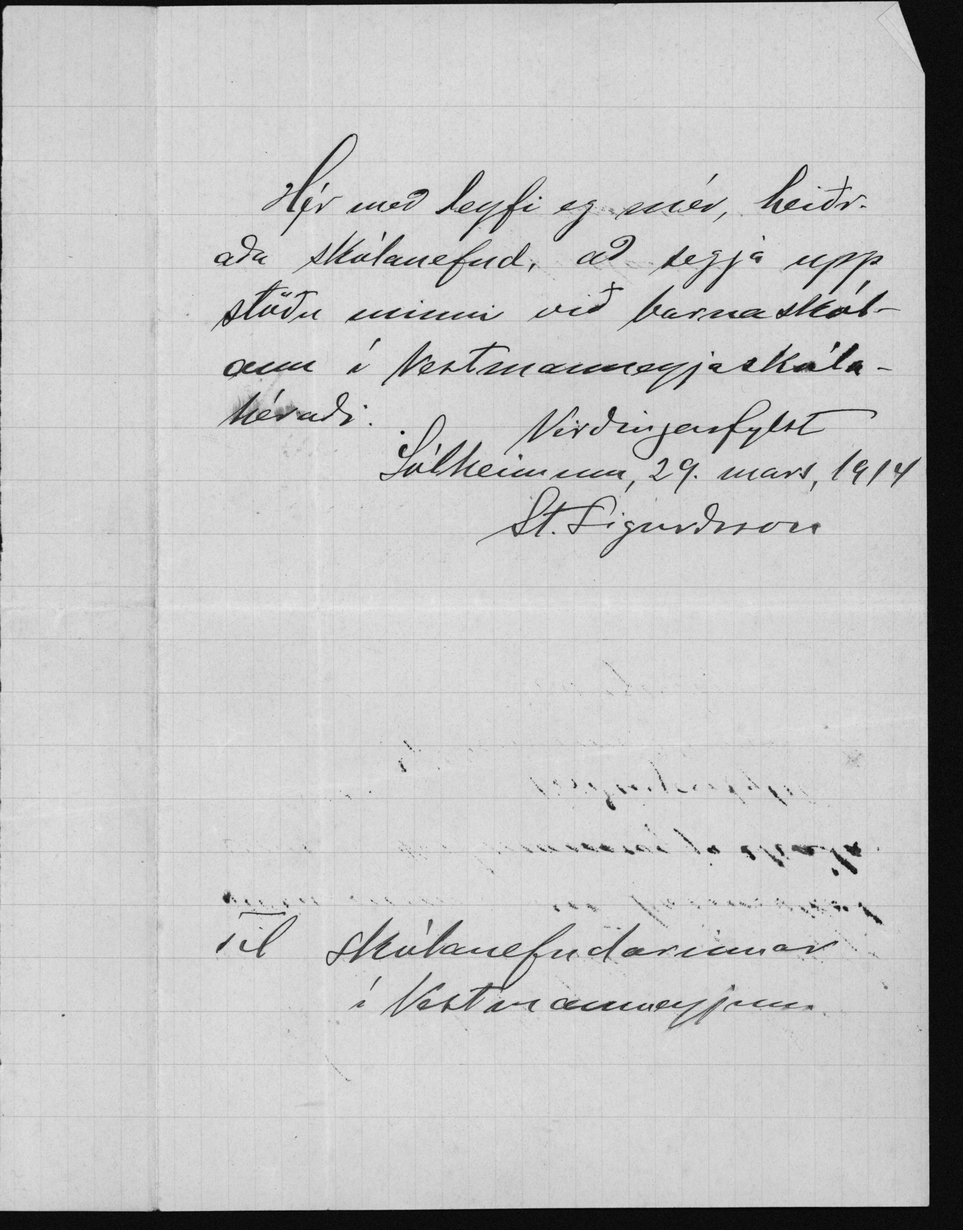 Hér með leyfi eg mér, heiðr-
aða skólanefnd, að segja upp
stöðu minni við barnaskól-
ann í Vestmannaeyjaskóla-
héraði.
Virðingarfylst
Sólheimum, 29. mars, 1914
St. Sigurðsson
Til skólanefndarinnar
í Vestmannaeyjum.